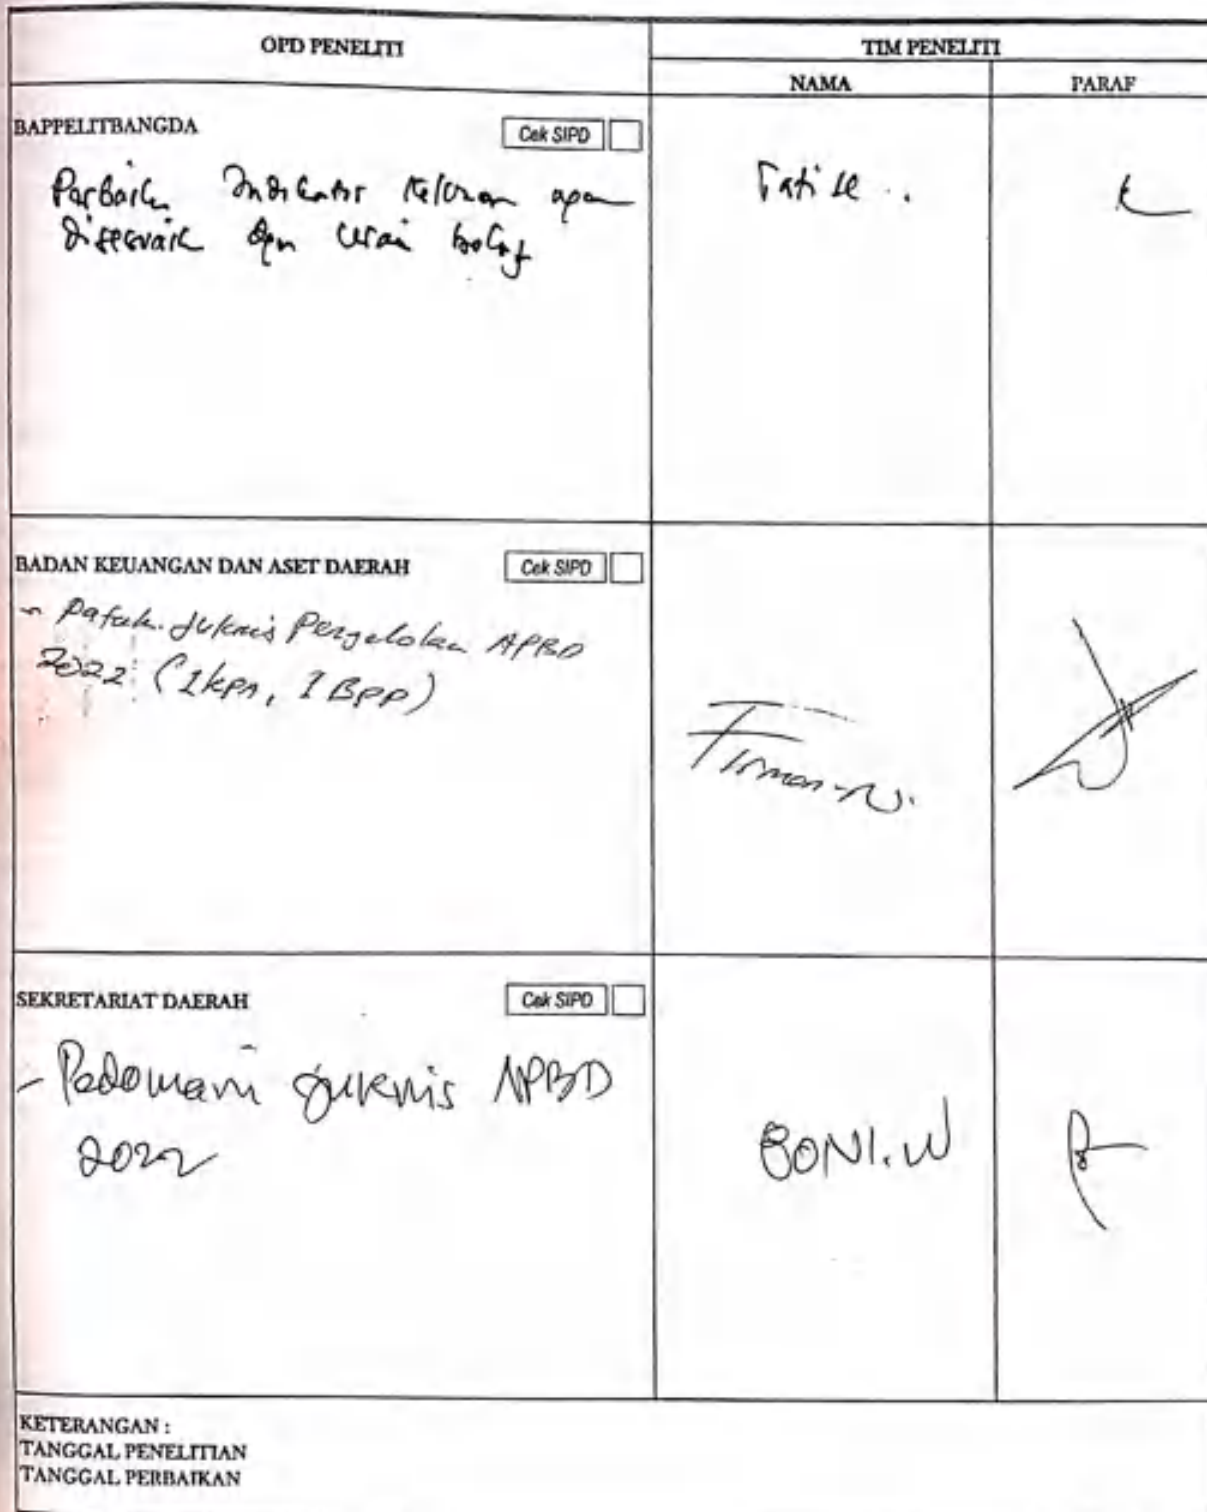 OPD PENELITI
TIM PENELITI
NAMA
PARAF
BAPPELITBANGDA
Cek SIPD
Indikator
Tati
BADAN KEUANGAN DAN ASET DAERAH
Cek SIPD
Juknis Pengelolan APBD
2022 (IKPA, IBPP)
Firman-N.
SEKRETARIAT DAERAH
Cek SIPD
- Pedomani Juknis APBD
2022
BONI.W
KETERANGAN :
TANGGAL PENELITIAN
TANGGAL PERBAIKAN